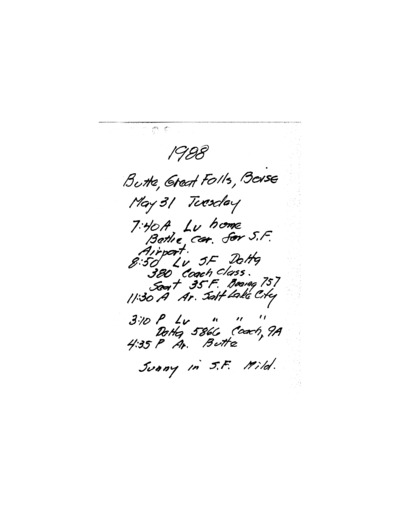 1988
Butte, Great Falls, Boise
May 31 Tuesday
7:40A Lv home
Bothe car. for S.F.
Airport.
8:50 Lv SF Delta
380 Coach Class.
Seat 35F. Boeing 757
11:30 A Ar. Salt Lake City
3:10 P Lv " " "
Delta 5866 Coach, 9A
4:35 P Ar. Butte
Sunny in S.F. Mild.